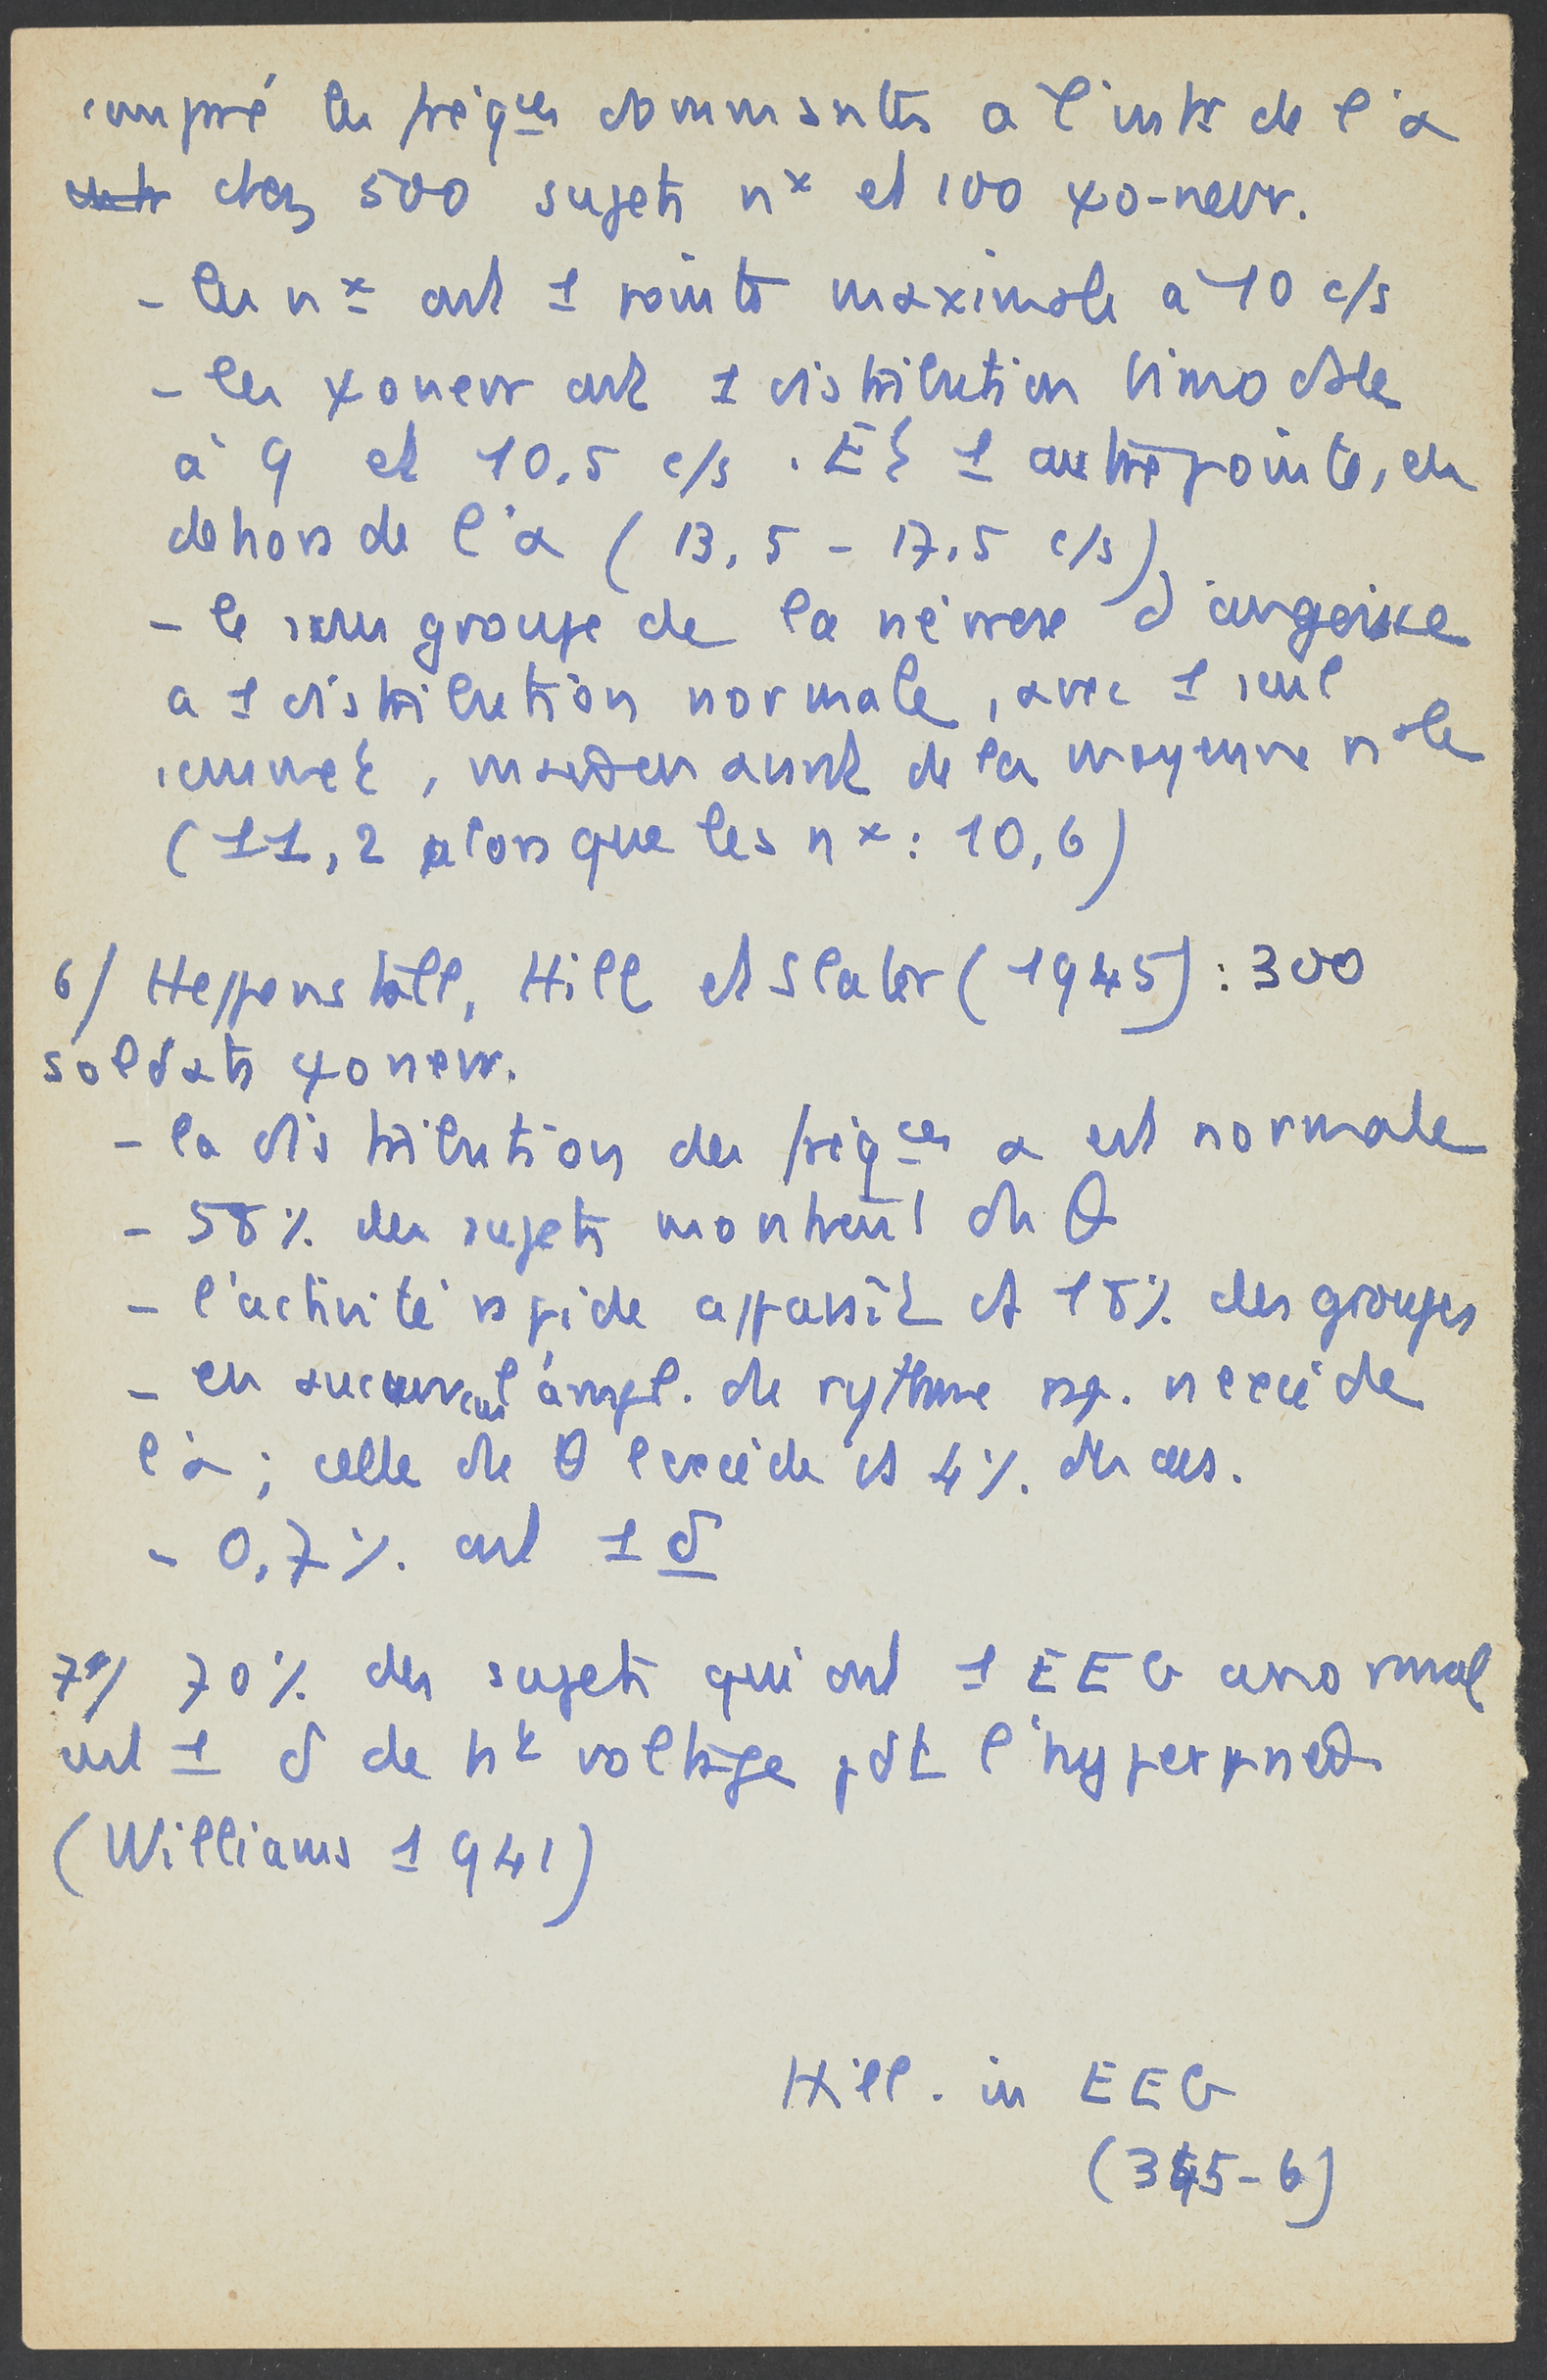 comparé les fréq<sup>ces</sup> dominantes a l'intr de l'α
chez 500 sujets n<sup>x</sup> et 100 ψo-nevr.
- les n<sup>x</sup> ont 1 pointe maximale a 10 c/s
- les ψonevr ont 1 distribution bimodale
à 9 et 10,5 c/s. Et 1 autre pointe, en
dehors de l'α (13,5 - 17,5 c/s)
- le sous groupe de la névrose d'angoisse
a 1 distribution normale, avec 1 seul
sommet, mais de la moyenne n<sup>ale</sup>
(11,2 alors que les n<sup>x</sup> : 10,6)
6/ Heppenstall, Hill et Slater (1945) : 300
soldats ψonevr.
- la distribution des fréq<sup>ces</sup> α est normale
- 58% des sujets montrent du θ
- l'activité rapide apparaît ds 18% des groupes
- en aucun cas l'ampl. de rythme rap. n'excède
l'α ; celle du θ l'excède ds 4% des cas.
- 0,7% ont 1 δ
7°/ 70% des sujets qui ont 1 EEG anormal
ont 1 δ de ht voltage pdt l'hyperpnée
(Williams 1941)
Hill. in EEG
(345-6)